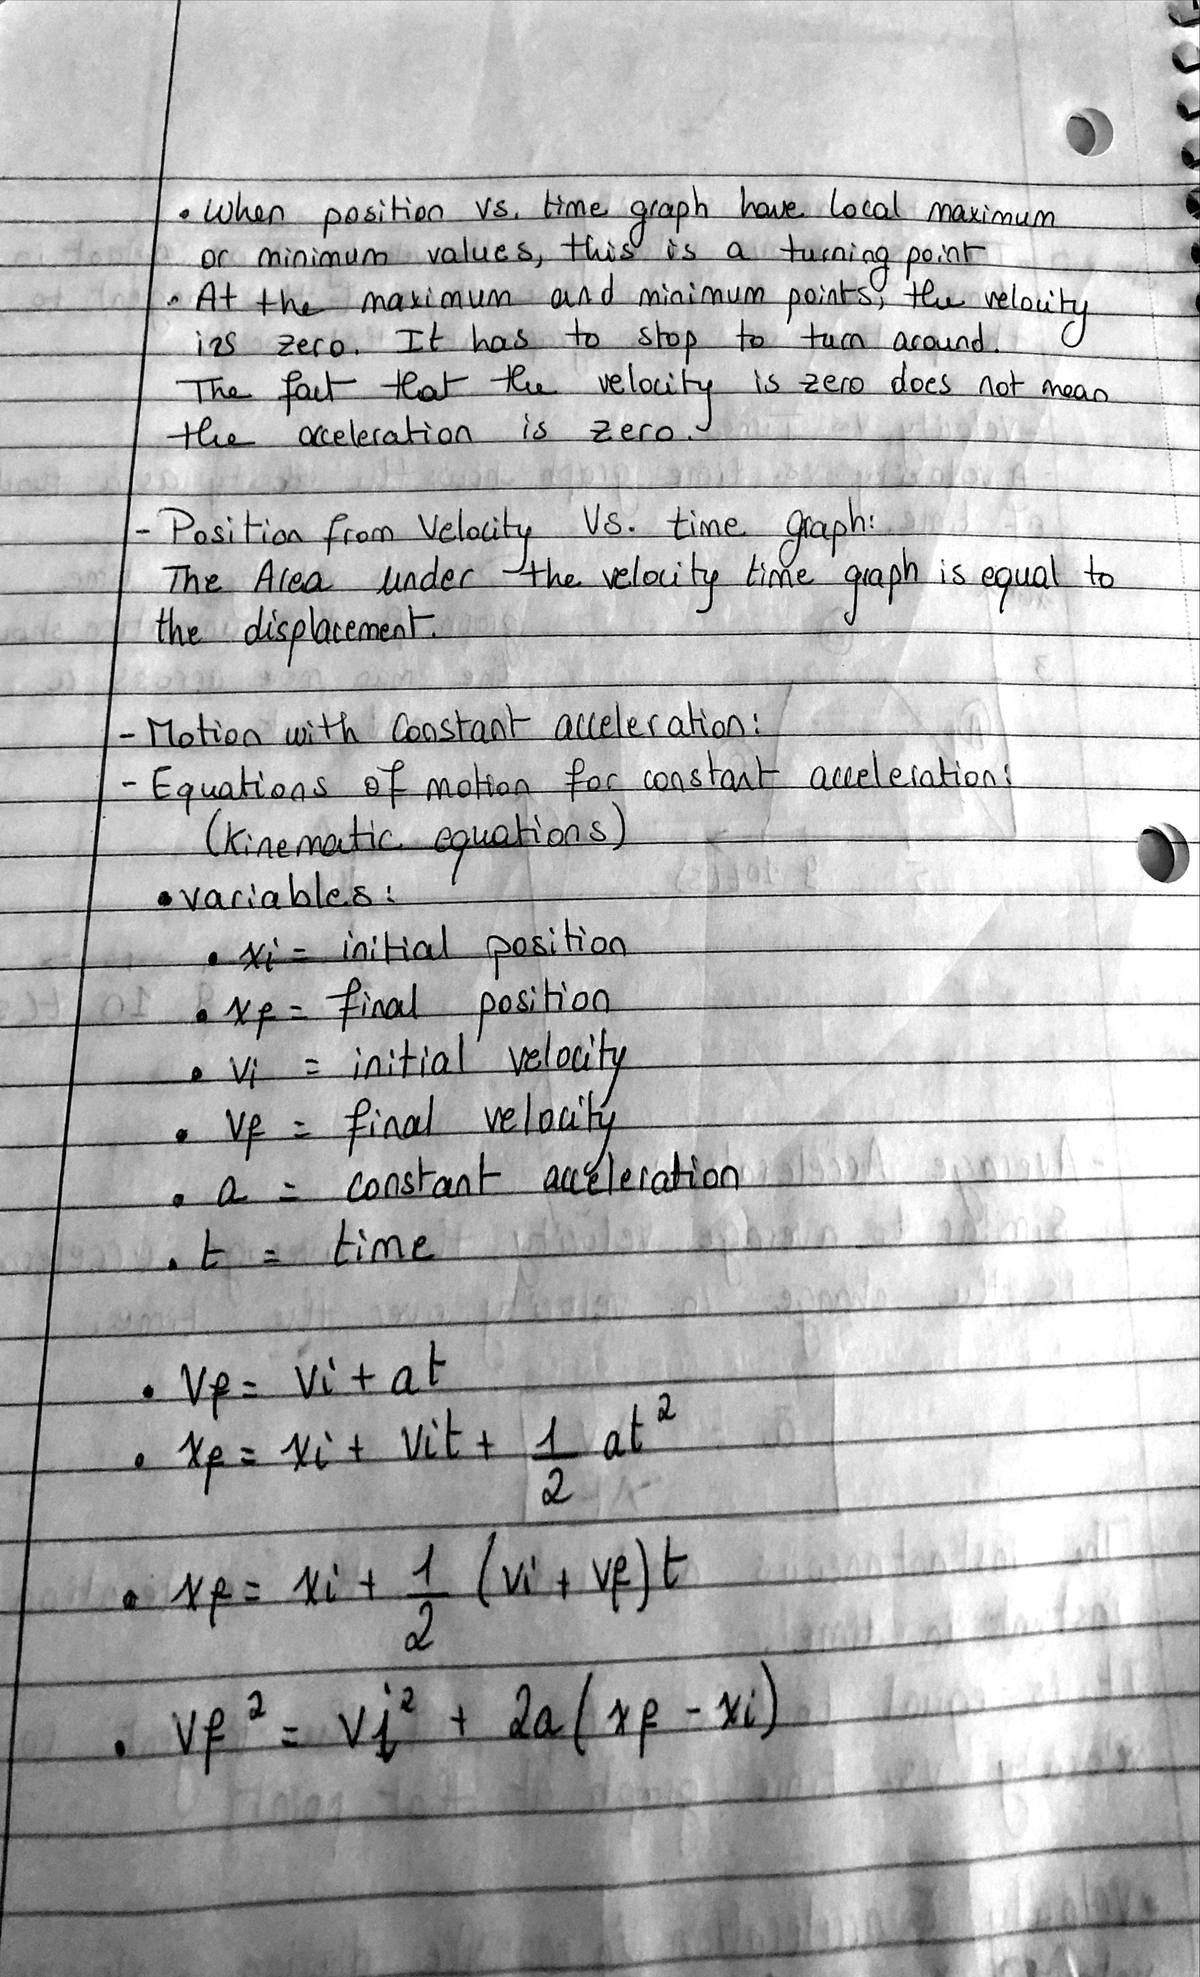 • When position vs. time graph have local maximum
or minimum values, this is a turning point
• At the maximum and minimum points, the velocity
is zero. It has to stop to turn around.
The fact that the velocity is zero does not mean
the acceleration is zero.
- Position from Velocity Vs. time graph:
The Area under the velocity time graph is equal to
the displacement.
- Motion with Constant acceleration:
- Equations of motion for constant acceleration:
(Kinematic equations)
• variables:
• xi = initial position
• xf = final position
• vi = initial velocity
• vf = final velocity
• a = constant acceleration
• t = time
• vf = vi + at
• xf = xi + vit + 1/2 at²
• xf = xi + 1/2 (vi + vf)t
• vf² = vi² + 2a(xf - xi)